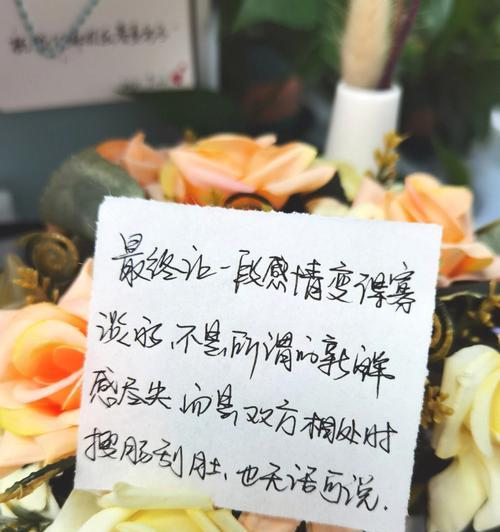 最终让一段感情变得寡
淡的，不是所谓的新鲜
感尽失，而是双方相处时
搜肠刮肚，也无话可说.